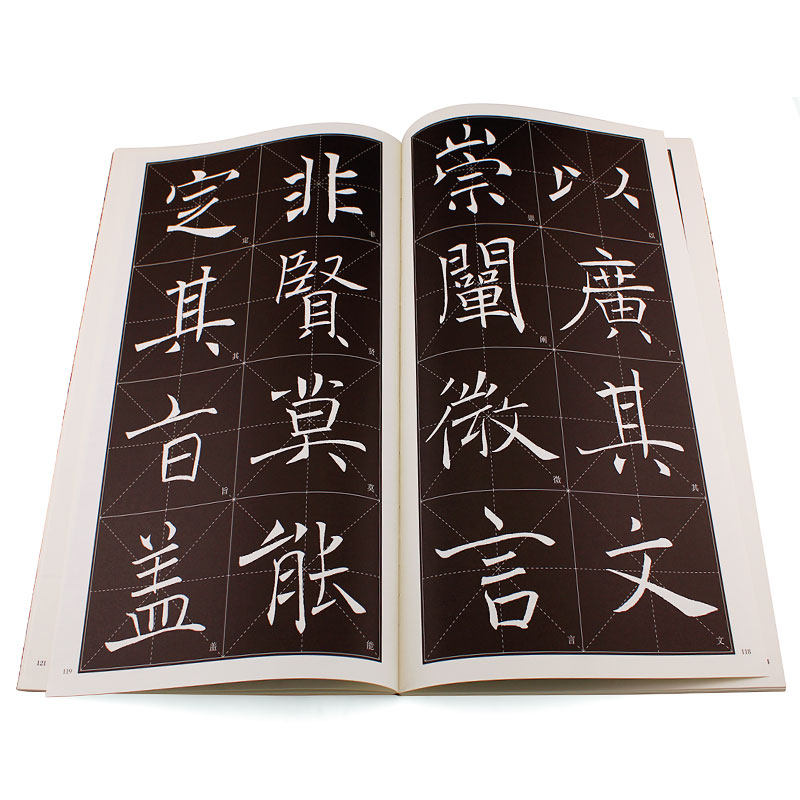 以廣其文
以广其文
崇闡微言
崇阐微言
118
非賢莫能
非贤莫能
定其旨盖
定其旨盖
119
121